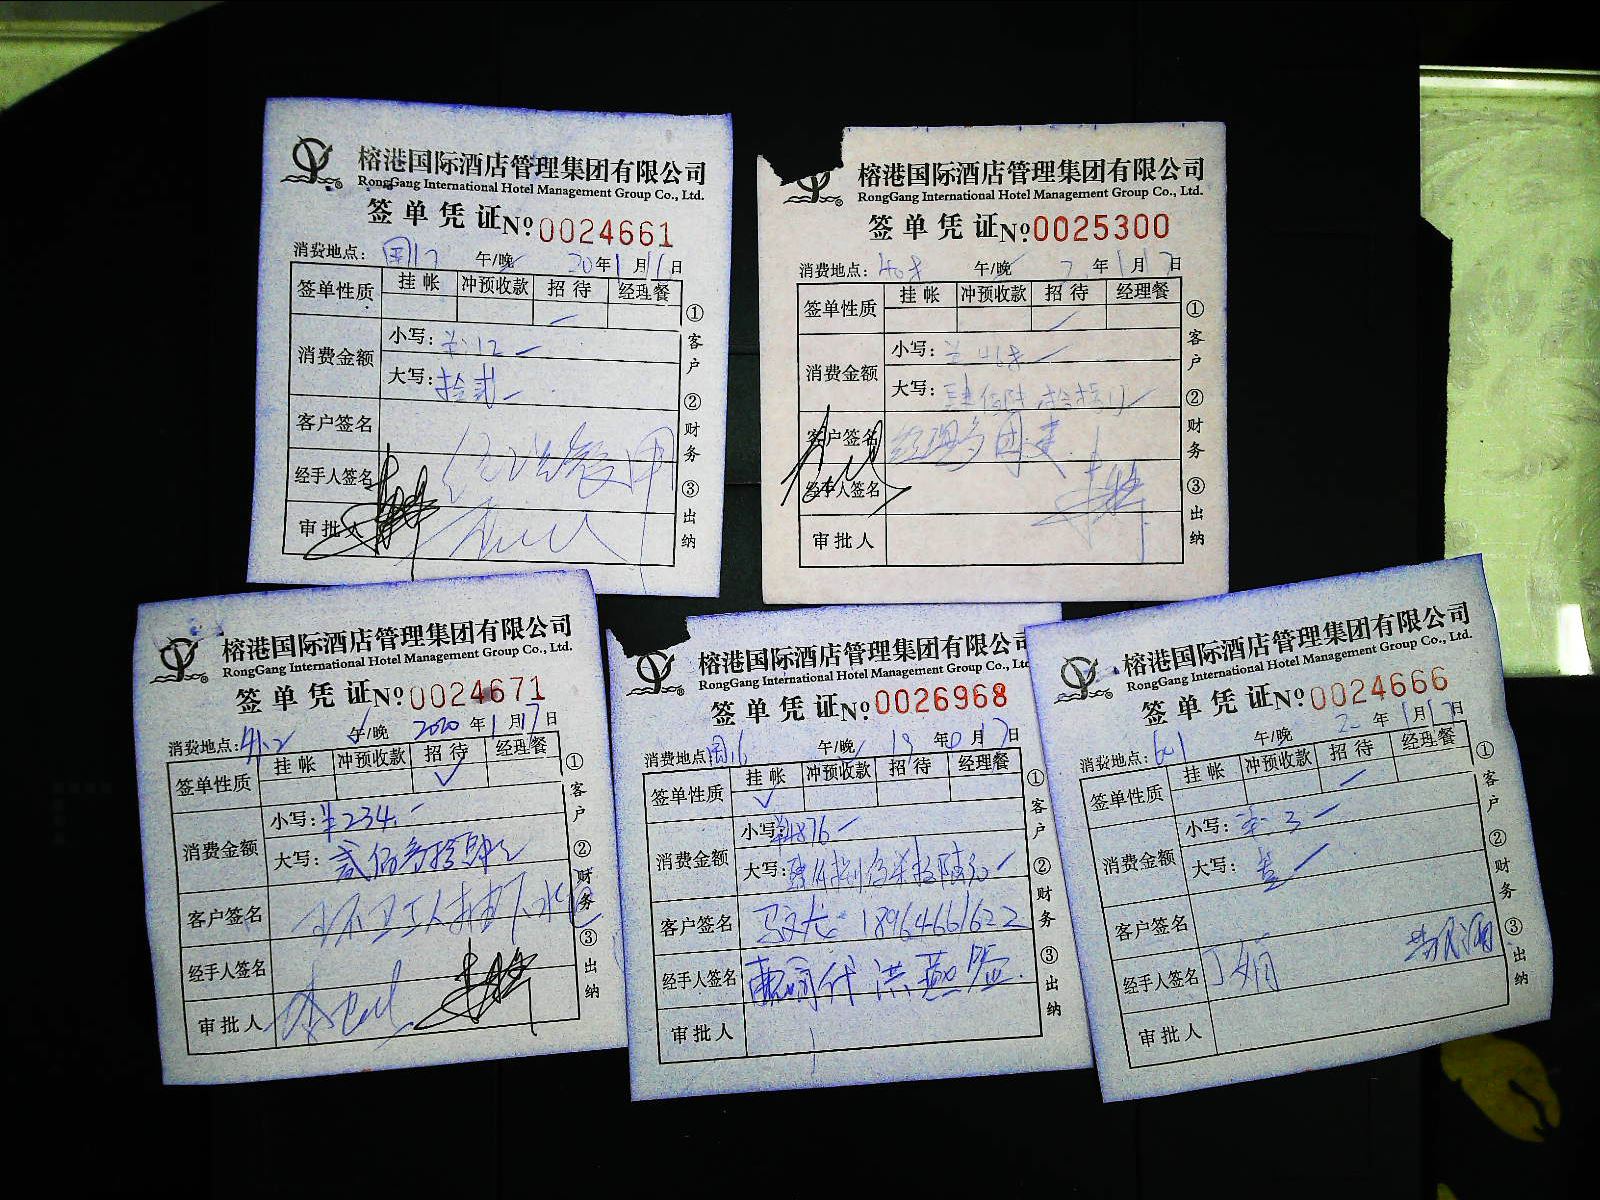 榕港国际酒店管理集团有限公司
RongGang International Hotel Management Group Co., Ltd.
签单凭证 No. 0024661
消费地点: 午/晚 20年1月16日
签单性质 挂帐 冲预收款 招待 经理餐
消费金额 小写: ¥12
大写: 拾贰
客户签名
经手人签名
审批人
① 客户 ② 财务 ③ 出纳
榕港国际酒店管理集团有限公司
RongGang International Hotel Management Group Co., Ltd.
签单凭证 No. 0025300
消费地点: 408 午/晚 年1月7日
签单性质 挂帐 冲预收款 招待 经理餐
消费金额 小写: ¥468
大写: 肆佰陆拾捌
客户签名 经理
经手人签名
审批人
① 客户 ② 财务 ③ 出纳
榕港国际酒店管理集团有限公司
RongGang International Hotel Management Group Co., Ltd.
签单凭证 No. 0024671
消费地点: 午/晚 2020年1月17日
签单性质 挂帐 冲预收款 招待 ✓ 经理餐
消费金额 小写: ¥234.
大写: 贰佰叁拾肆元
客户签名
经手人签名
审批人
① 客户 ② 财务 ③ 出纳
榕港国际酒店管理集团有限公司
RongGang International Hotel Management Group Co., Ltd.
签单凭证 No. 0026968
消费地点: 午/晚 19年 月7日
签单性质 挂帐 ✓ 冲预收款 招待 经理餐
消费金额 小写: ¥4876
大写: 肆仟捌佰柒拾陆元
客户签名 马文龙 18964661622
经手人签名 代洪燕签
审批人
① 客户 ② 财务 ③ 出纳
榕港国际酒店管理集团有限公司
RongGang International Hotel Management Group Co., Ltd.
签单凭证 No. 0024666
消费地点: 601 午/晚 20年1月17日
签单性质 挂帐 冲预收款 招待 经理餐
消费金额 小写:
大写:
客户签名
经手人签名 丁娟
审批人
① 客户 ② 财务 ③ 出纳